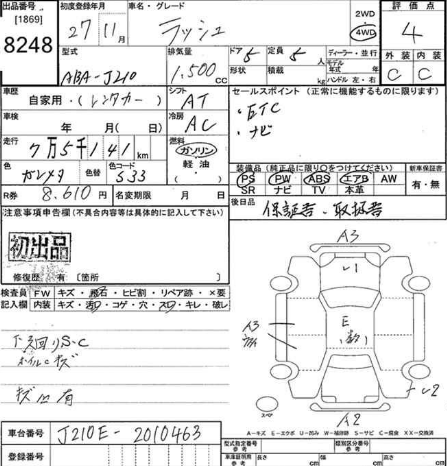 出品番号 初度登録年月 車名・グレード 2WD 評価点
[1869] 27年11月 ラッシュ 4WD 4
8248 型式 排気量 ドア 5 定員 5 ディーラー・並行 外装 内装
ABA-J210 1,500cc 形状 積載 kg モデル年式 年 ハンドル 左・右 C C
車歴 自家用・(レンタカー) シフト AT セールスポイント(正常に機能するものに限ります)
車検 年 月(日) 冷房 AC ・ETC
走行 7万5千141km 燃料 ガソリン 軽油 ・ナビ
色 ガンメタ 色替 色コード S33 装備品(純正品に限り○をつけてください) 新車保証書
R券 8,610円 名変期限 月 日 PS PW ABS エアB AW 有・無
SR ナビ TV 本革
注意事項申告欄(不具合内容等は具体的に記入して下さい) 後日品 保証書・取扱書
初出品
修復歴 有 [箇所
A3
検査員記入欄 FW キズ・飛石・ヒビ割・リペア跡・×要
内装 キズ・汚・コゲ・穴・スレ・キレ・破レ
下廻りS・C
ホイルにキズ
キズ凹有
レ1
E
(数)
A3
レ2
A2
スペア
A-キズ E-エクボ U-凹み W-補修跡 S-サビ C-腐食 XX-交換済
車台番号 J210E-2010463
登録番号
型式指定番号 参考 類別区分番号 参考
車検証参考 長さ cm 幅 cm 高さ cm